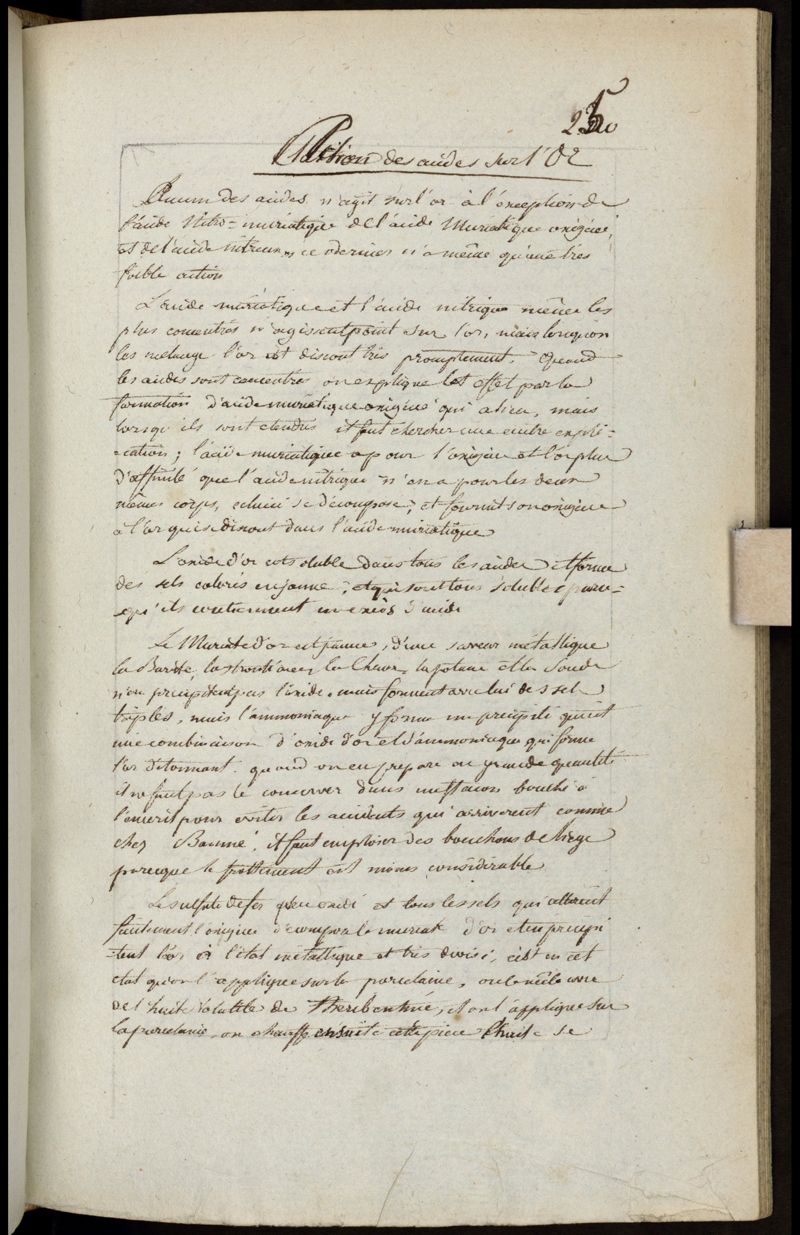 action des acides sur l'Or
Aucun des acides n'agit sur l'or à l'exception de
l'acide Nitro-muriatique de l'acide Muriatique oxigéné,
et de l'acide nitreux, ce dernier n'a même qu'une très
foible action
L'acide muriatique et l'acide nitrique même les
plus concentrés n'agissent point sur l'or, mais lorsqu'on
les melange l'or est dissout très promptement. Quand
les acides sont concentrés on explique cet effet par la
formation d'acide muriatique oxigéné qui a lieu, mais
lorsqu'ils sont etendus il faut chercher une autre expli=
=cation; l'acide muriatique a pour l'oxigène et l'or plus
d'affinité que l'acide nitrique n'en a pour les deux
mêmes corps, celuici se décompose, et fournit son oxigène
à l'or qui se dissout dans l'acide muriatique
L'oxide d'or est soluble dans tous les acides et forme
des sels colorés en jaune, et qui sont tous solubles parce=
=qu'ils contiennent un excès d'acide
Le Muriate d'or est jaune, d'une saveur métallique
la Barite, la strontiane, la Chaux, la potasse et la Soude
n'en précipitent pas l'oxide, mais forment avec lui des sels
triples, mais l'ammoniaque y forme un précipité qui est
une combinaison d'oxide d'or et d'ammoniaque qui forme
l'or détonnant. quand on en prepare en grande quantité
il ne faut pas le conserver dans un flacon bouché à
l'émeri pour éviter les accidents qui arriverent comme
chez Baumé, il faut emploier des bouchons de liege
parceque le frottement est moins considérable
Le sulfate de fer peu oxidé et tous les sels qui attirent
fortement l'oxigène décompose le muriate d'or et en précipi
=tent l'or à l'état métallique et très divisé, c'est en cet
etat qu'on l'applique sur la porcelaine, on le mêle avec
de l'huile volatile de Therebentine, et on l'applique sur
la porcelaine, on chauffe ensuite cette pièce l'huile se